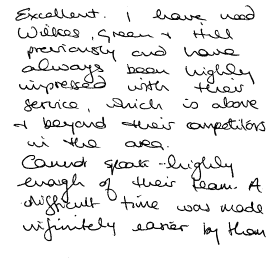 Excellent. I have used
Wilkes, Green + Hill
previously and have
always been highly
impressed with their
service, which is above
+ beyond their competitors
in the area.
Cannot speak highly
enough of their team. A
difficult time was made
infinitely easier by them